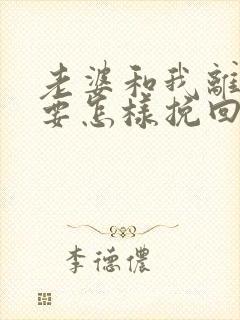 老婆和我離
要怎樣挽回
李德儂